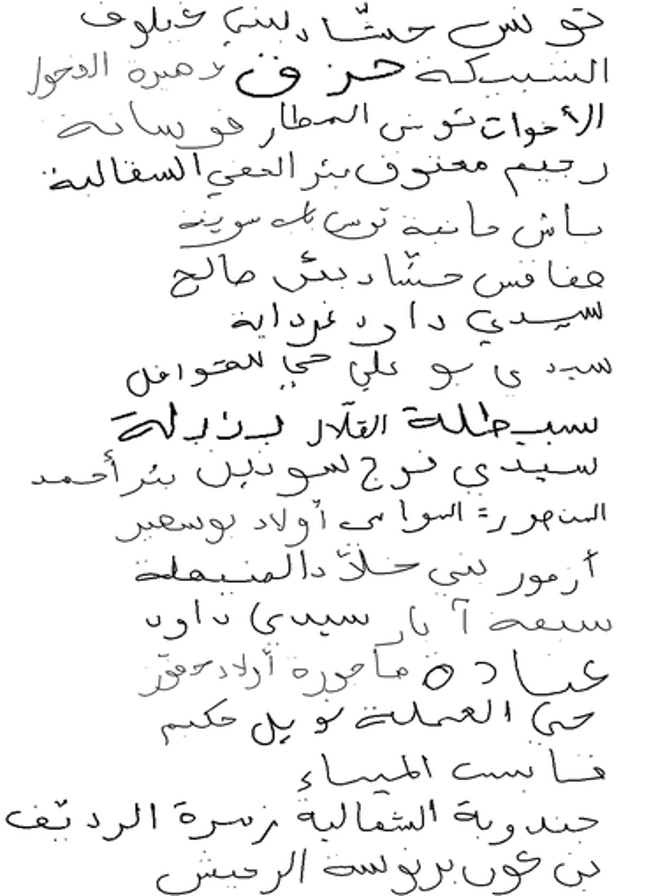 تونس حشّاد بني خيلوف
السبيكة حزق زهرة الدخول
الأخوات تونس المطار فوسانة
رجيم معتوق بئر الحفي السقالبة
باش حانبة تونس باب سويقة
صفاقس حشّاد بئر صالح
سيدي داود غرداية
سيدي بو علي حي القوافل
سبيطلة القلال بذرلة
سيدي فرج سوديل بئر أحمد
المنصورة السواسي أولاد بوسمير
أزمور بني خلاّد المنيهلة
سبعة آبار سيدي داود
عبادة ماجورة أولاد حفوز
حي العملة نويل حكيم
قابس الميساء
جندوبة الشمالية زمرة الرديف
بن عون بربوسة الرحيش